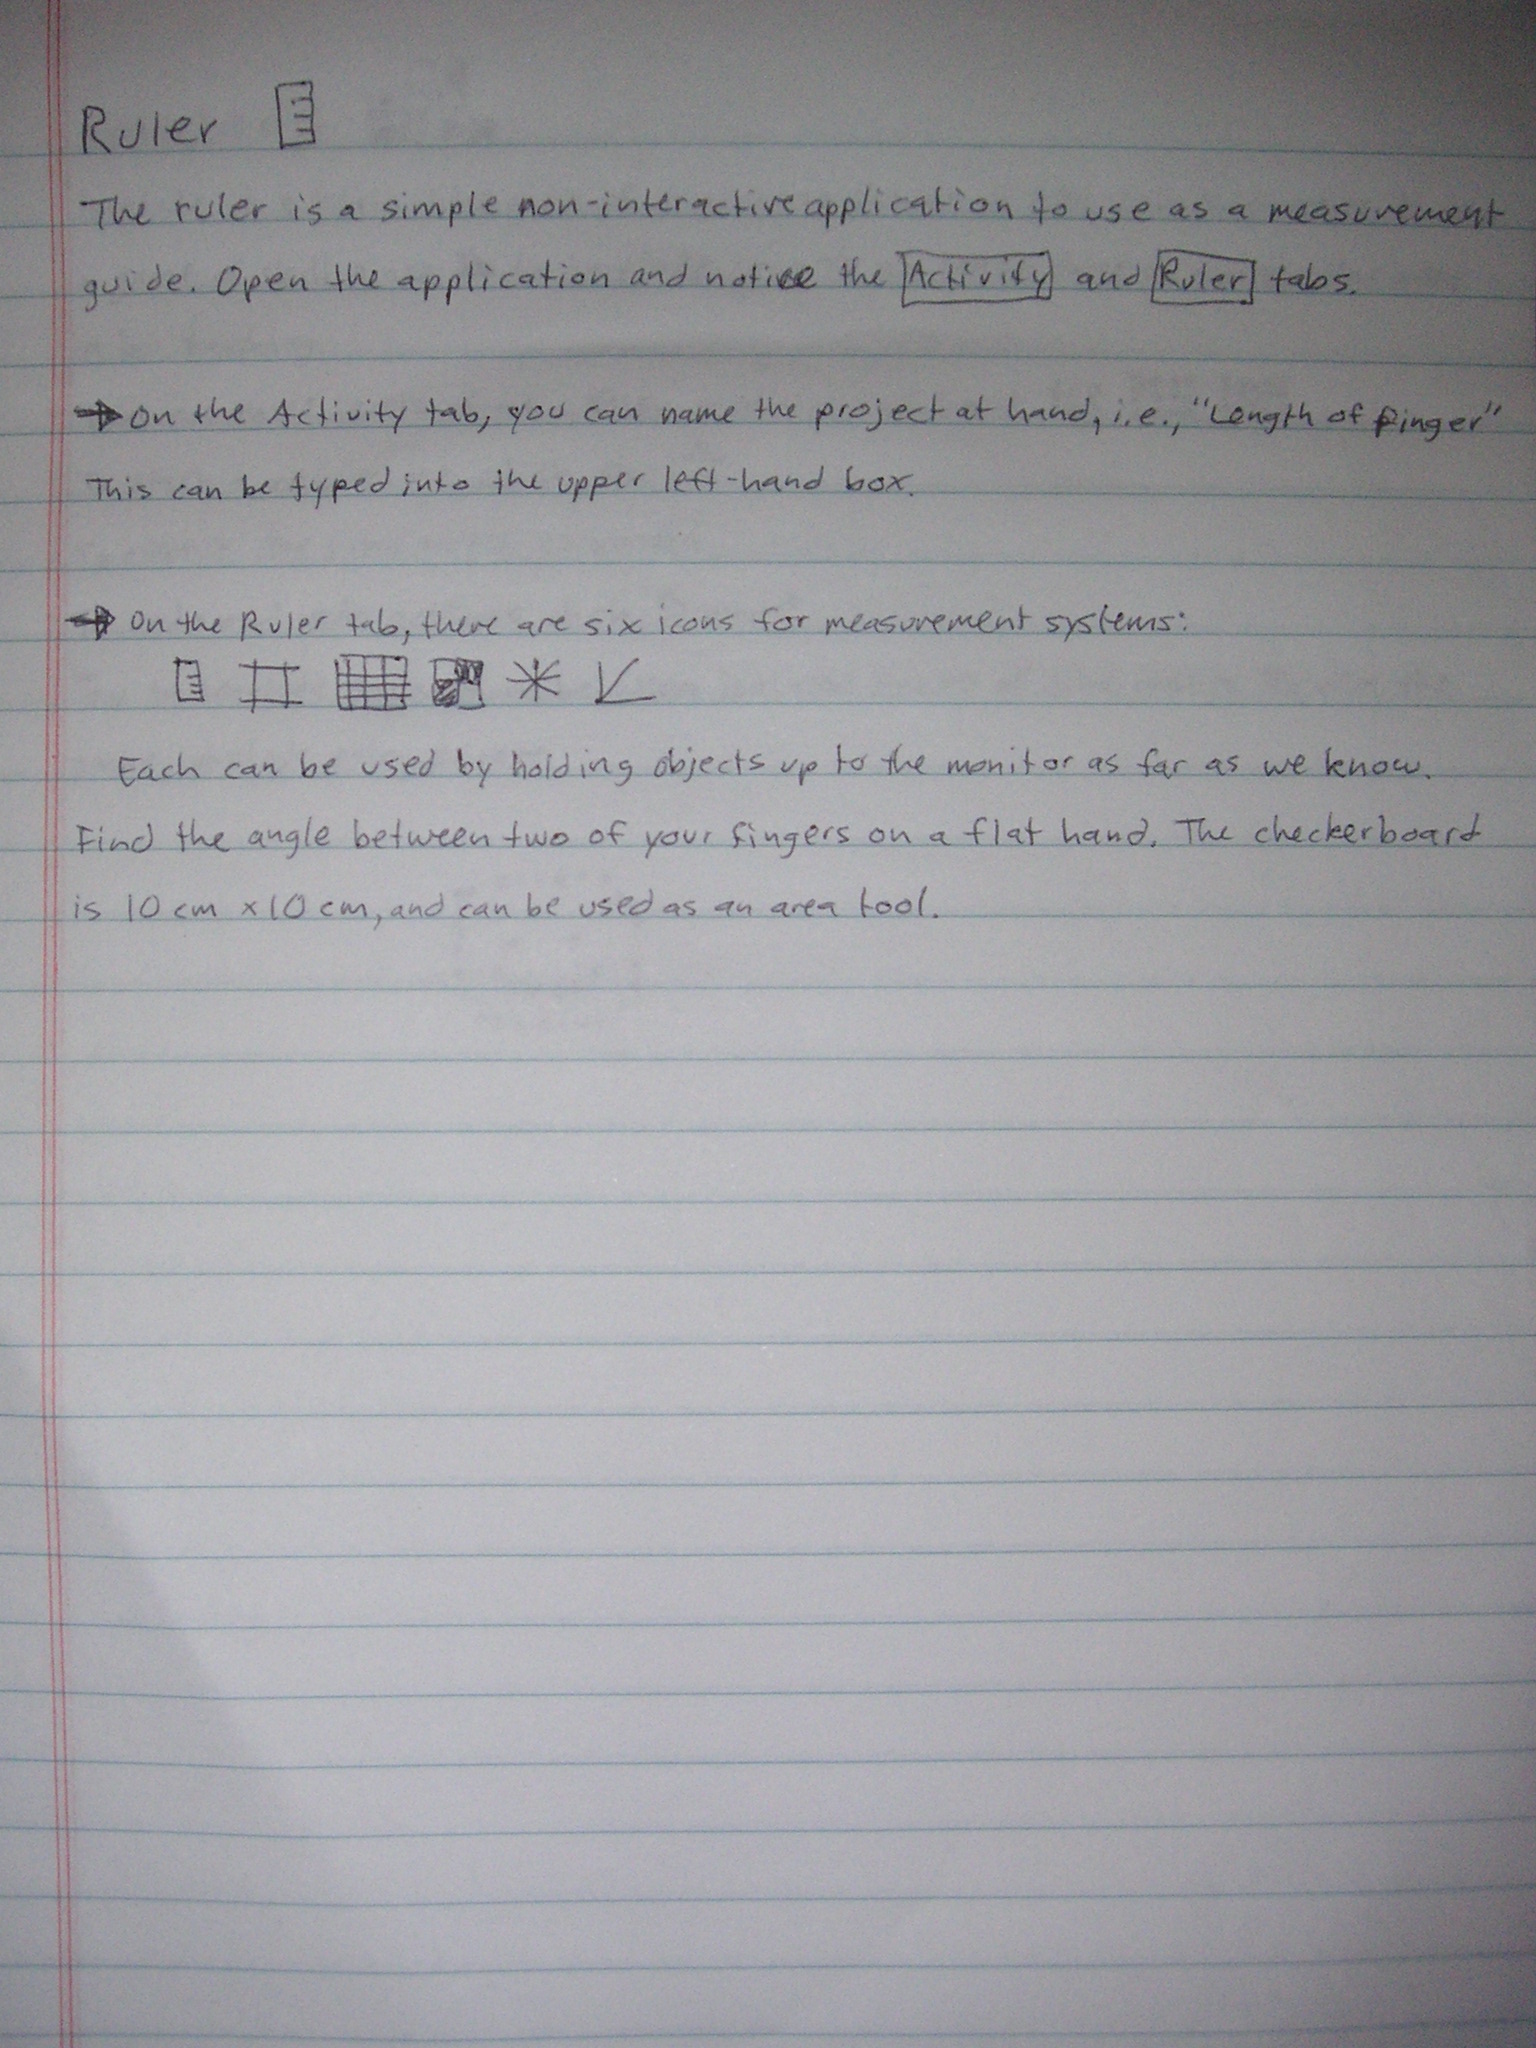 Ruler
The ruler is a simple non-interactive application to use as a measurement
guide. Open the application and notice the Activity and Ruler tabs.
On the Activity tab, you can name the project at hand, i.e., "Length of finger"
This can be typed into the upper left-hand box.
On the Ruler tab, there are six icons for measurement systems:
Each can be used by holding objects up to the monitor as far as we know.
Find the angle between two of your fingers on a flat hand. The checkerboard
is 10 cm x 10 cm, and can be used as an area tool.